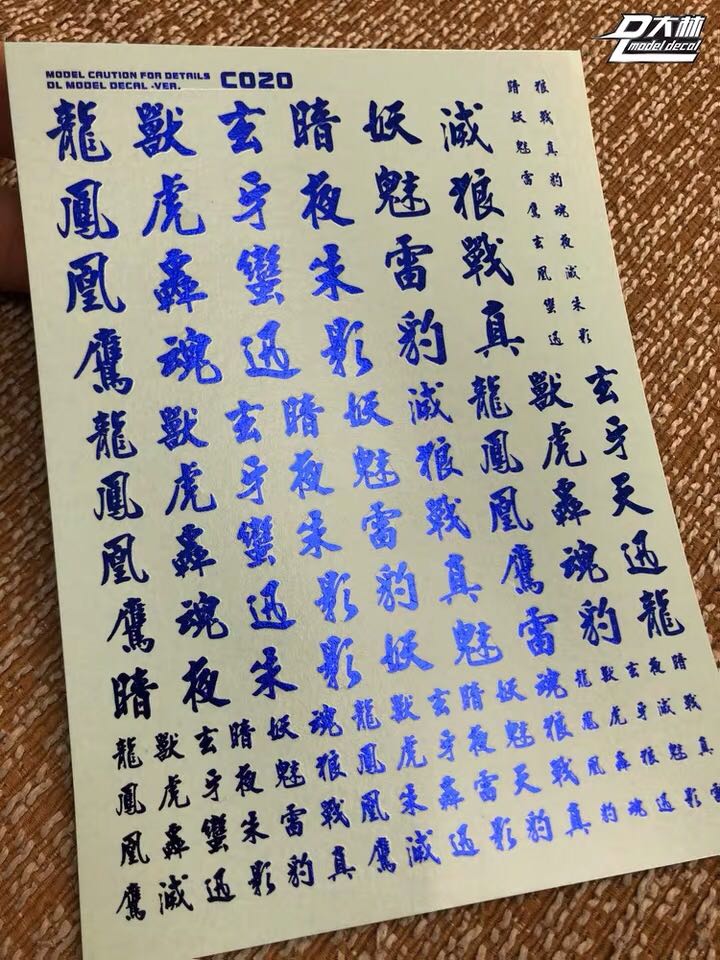 大林
model decal
MODEL CAUTION FOR DETAILS
DL MODEL DECAL -VER.
C020
龍獸玄暗妖滅
鳳虎牙夜魅狼
凰轟蠻朱雷戰
鷹魂迅影豹真
暗狼
妖戰
魅真
雷豹
鷹魂
玄夜
凰滅
蠻朱
迅影
龍獸玄暗妖滅龍獸玄
鳳虎牙夜魅狼鳳虎牙
凰轟蠻朱雷戰凰轟天
鷹魂迅影豹真鷹魂迅
暗夜朱影妖魅雷豹龍
龍獸玄暗妖魂龍獸玄暗妖魂龍獸玄夜暗
鳳虎牙夜魅狼鳳虎牙夜魅狼鳳虎牙滅戰
凰轟蠻朱雷戰凰朱轟雷天戰凰轟狼魅真
鷹滅迅影豹真鷹滅迅影豹真豹魂迅影雷